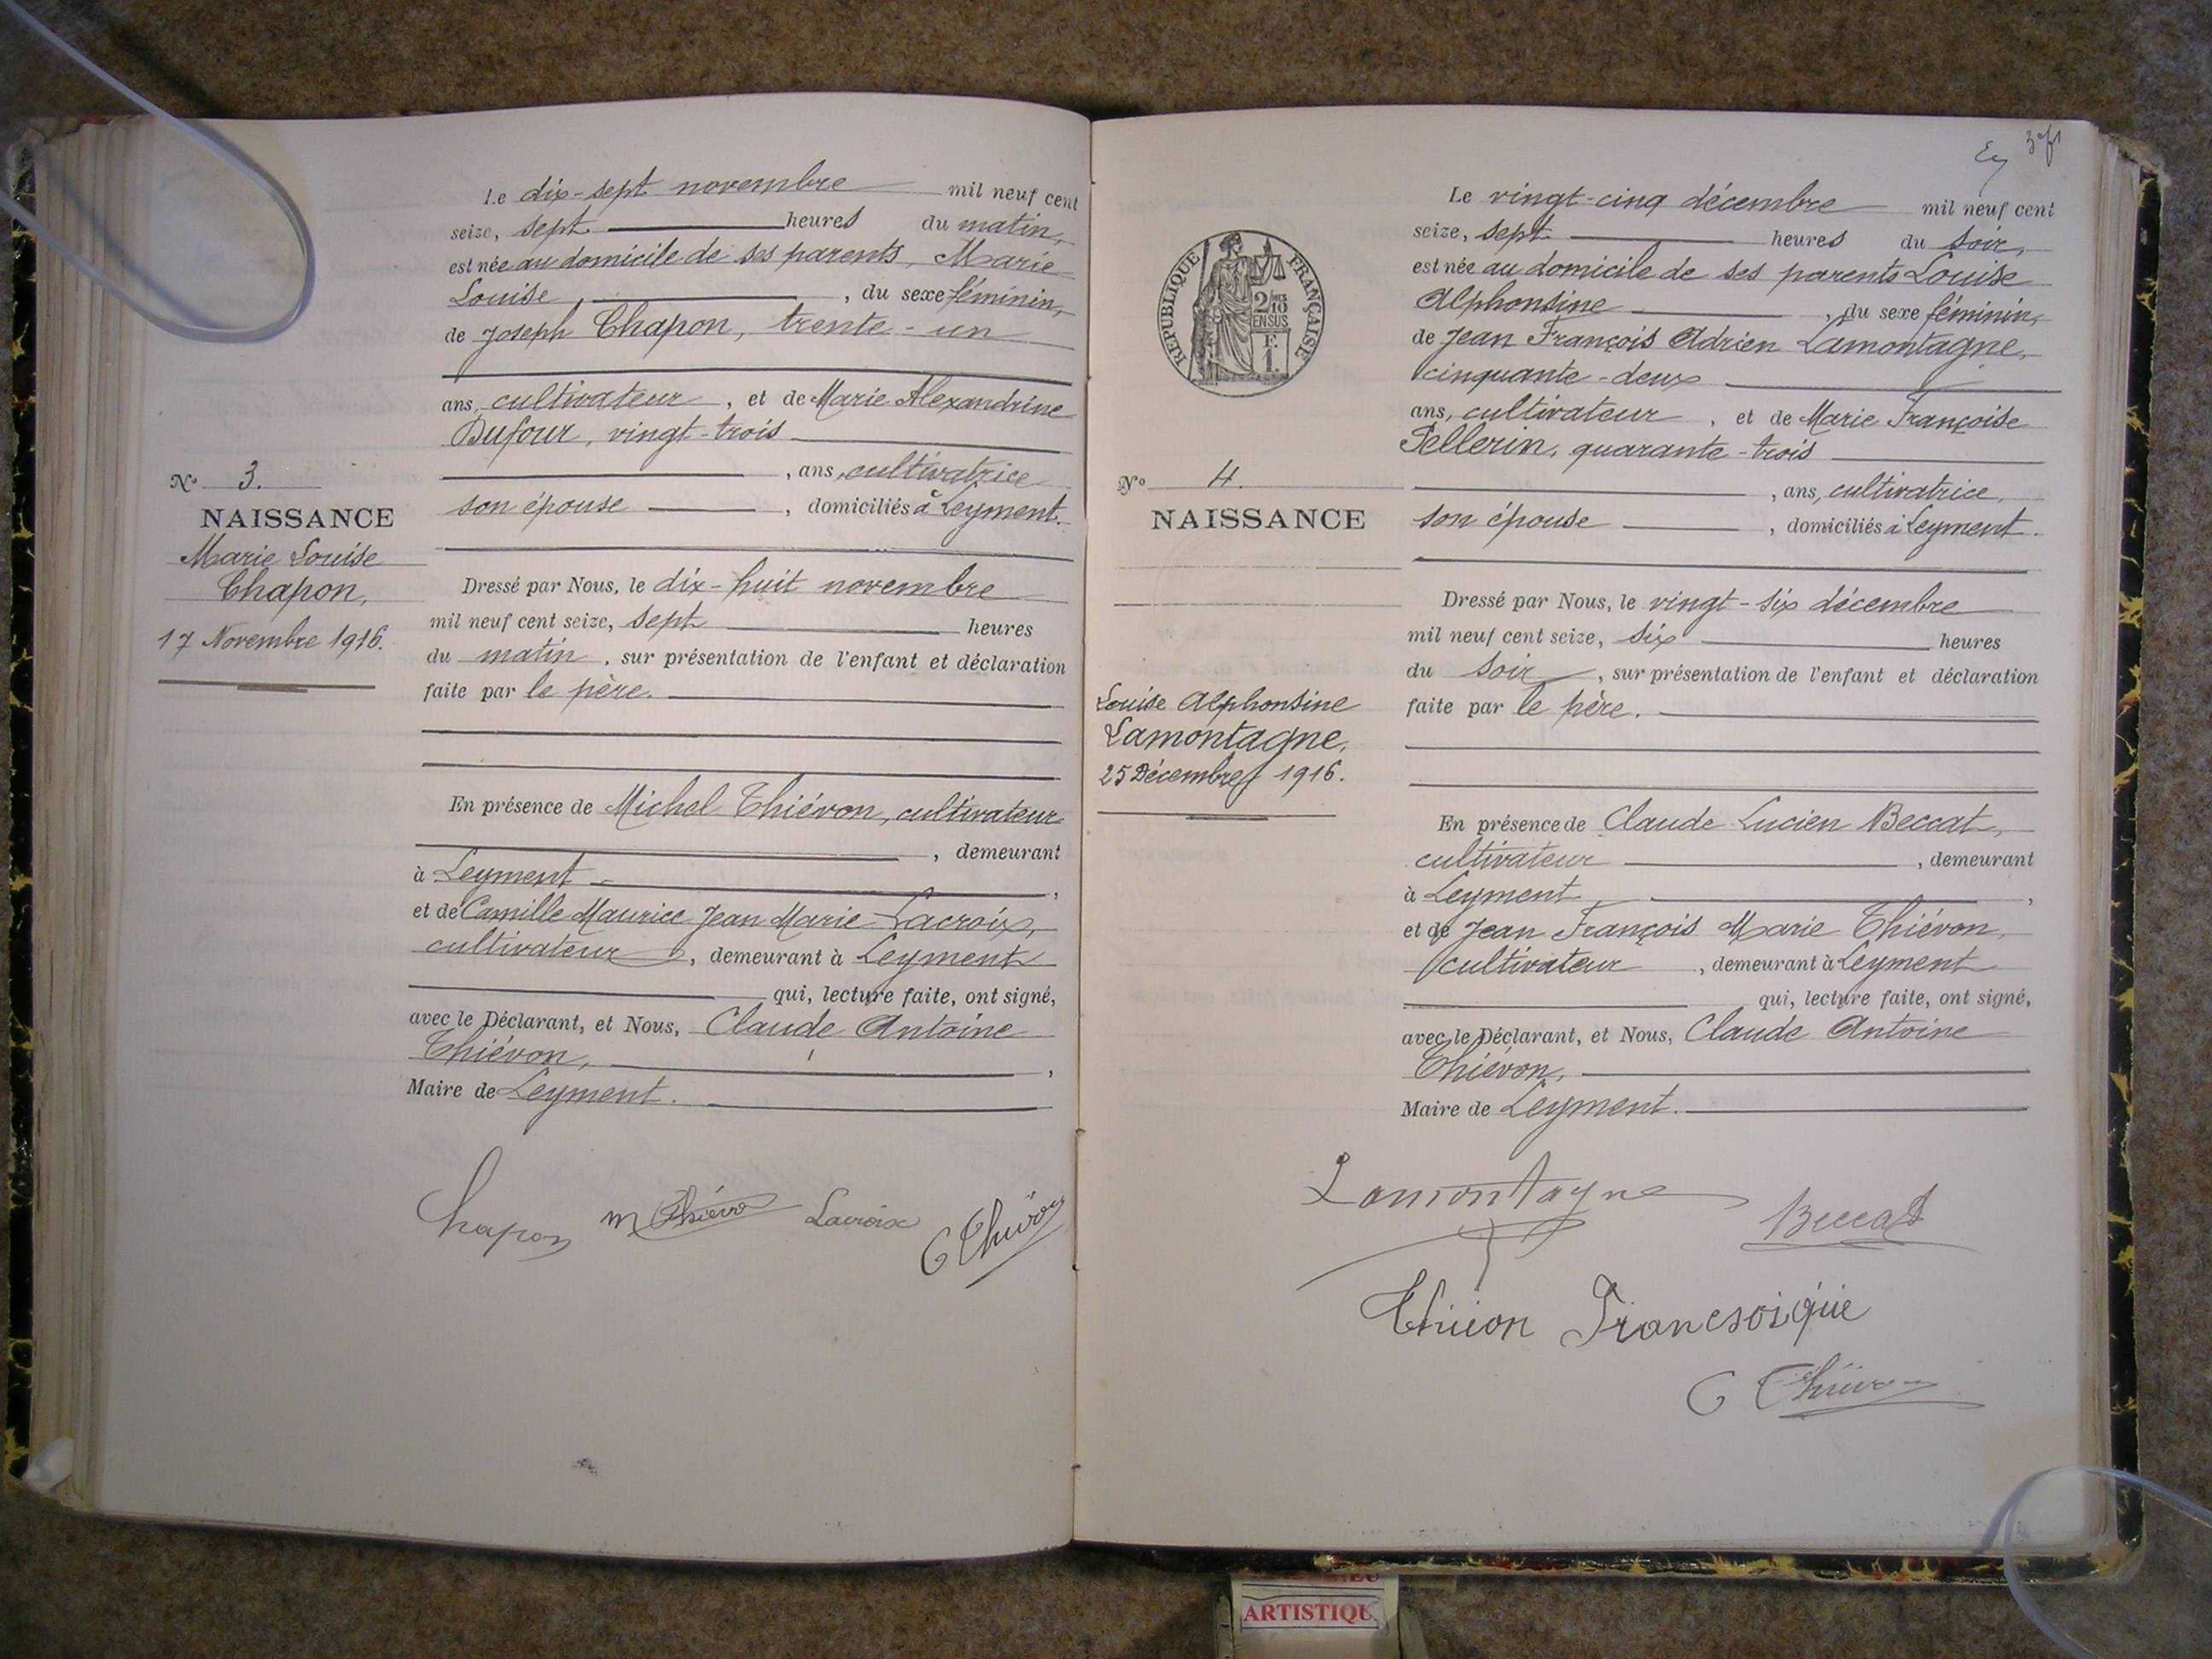 Le dix-sept novembre mil neuf cent
seize, sept heures du matin,
est née au domicile de ses parents, Marie
Louise, du sexe féminin,
de Joseph Chapon, trente-un
ans, cultivateur, et de Marie Alexandrine
Dufour, vingt-trois
, ans, cultivatrice
son épouse, domiciliés à Leyment.
N° 3.
NAISSANCE
Marie Louise
Chapon,
17 Novembre 1916.
Dressé par Nous, le dix-huit novembre
mil neuf cent seize, sept heures
du matin, sur présentation de l'enfant et déclaration
faite par le père.
En présence de Michel Thiévon, cultivateur
, demeurant
à Leyment,
et de Camille Maurice Jean Marie Lacroix,
cultivateur, demeurant à Leyment
qui, lecture faite, ont signé,
avec le Déclarant, et Nous, Claude Antoine
Thiévon,
Maire de Leyment.
Chapon M Thiévon Lacroix C Thiévon
Le vingt-cinq décembre mil neuf cent
seize, sept heures du soir,
est née au domicile de ses parents Louise
Alphonsine, du sexe féminin,
de Jean François Adrien Lamontagne,
cinquante-deux
ans, cultivateur, et de Marie Françoise
Pellerin, quarante-trois
, ans, cultivatrice,
son épouse, domiciliés à Leyment.
RÉPUBLIQUE FRANÇAISE
2/10
EN SUS
F.
1.
N° 4.
NAISSANCE
Louise Alphonsine
Lamontagne,
25 Décembre 1916.
Dressé par Nous, le vingt-six décembre
mil neuf cent seize, six heures
du soir, sur présentation de l'enfant et déclaration
faite par le père.
En présence de Claude Lucien Beccat,
cultivateur, demeurant
à Leyment,
et de Jean François Marie Thiévon,
cultivateur, demeurant à Leyment
qui, lecture faite, ont signé,
avec le Déclarant, et Nous, Claude Antoine
Thiévon,
Maire de Leyment.
Lamontagne
Beccat
C Thiévon
ARTISTIQU